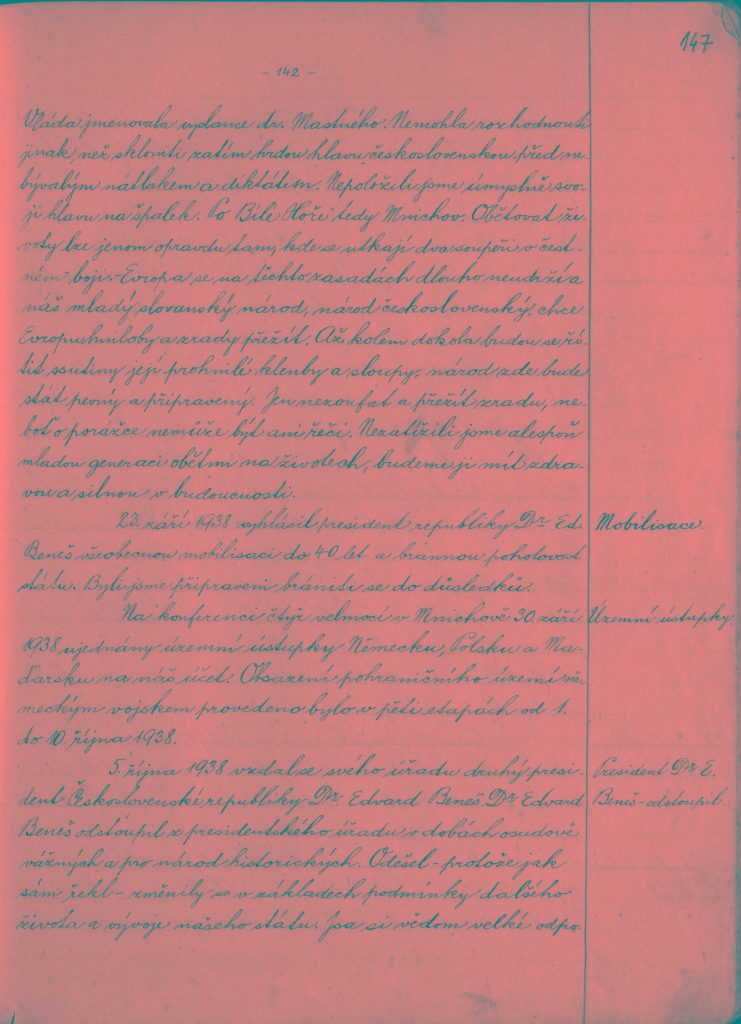 147
- 142 -
Vláda jmenovala vyslance dr. Mastného. Nemohla rozhodnouti
jinak, než skloniti zatím hrdou hlavu československou před ne-
bývalým nátlakem a diktátem. Nepoložili jsme úmyslně svo-
ji hlavu na špalek. Po Bílé Hoře tedy Mnichov. Obětovat ži-
voty lze jenom opravdu tam, kde se utkají dva soupeři v čest-
ném boji.- Evropa se na těchto zasadách dlouho neudrží a
náš mladý slovanský národ, národ československý, chce
Evropu hniloby a zrady přežít. Až kolem dokola budou se ří-
tit ssutiny její prohnilé klenby a sloupy, národ zde bude
stát pevný a připravený. Jen nezoufat a přežít zradu, ne-
boť o porážce nemůže být ani řeči. Nezatížili jsme alespoň
mladou generaci obětmi na životech, budeme ji mít zdra-
vou a silnou v budoucnosti.
23. září 1938 vyhlásil president republiky Dr. Ed.
Mobilisace.
Beneš všeobecnou mobilisaci do 40 let a brannou pohotovost
státu. Byli jsme připraveni brániti se do důsledků.
Na konferenci čtyř velmocí v Mnichově 30. září
Územní ústupky.
1938 ujednány územní ústupky Německu, Polsku a Ma-
ďarsku na náš účet. Obsazení pohraničního území ně-
meckým vojskem provedeno bylo v pěti etapách od 1.
do 10. října 1938.
5. října 1938 vzdal se svého úřadu druhý presi-
President Dr. E.
dent Československé republiky Dr. Edvard Beneš. Dr. Edvard
Beneš - odstoupil.
Beneš odstoupil z presidentského úřadu v dobách osudově
vážných a pro národ historických. Odešel - protože jak
sám řekl - změnily se v základech podmínky dalšího
života a vývoje našeho státu. Jsa si vědom velké odpo-